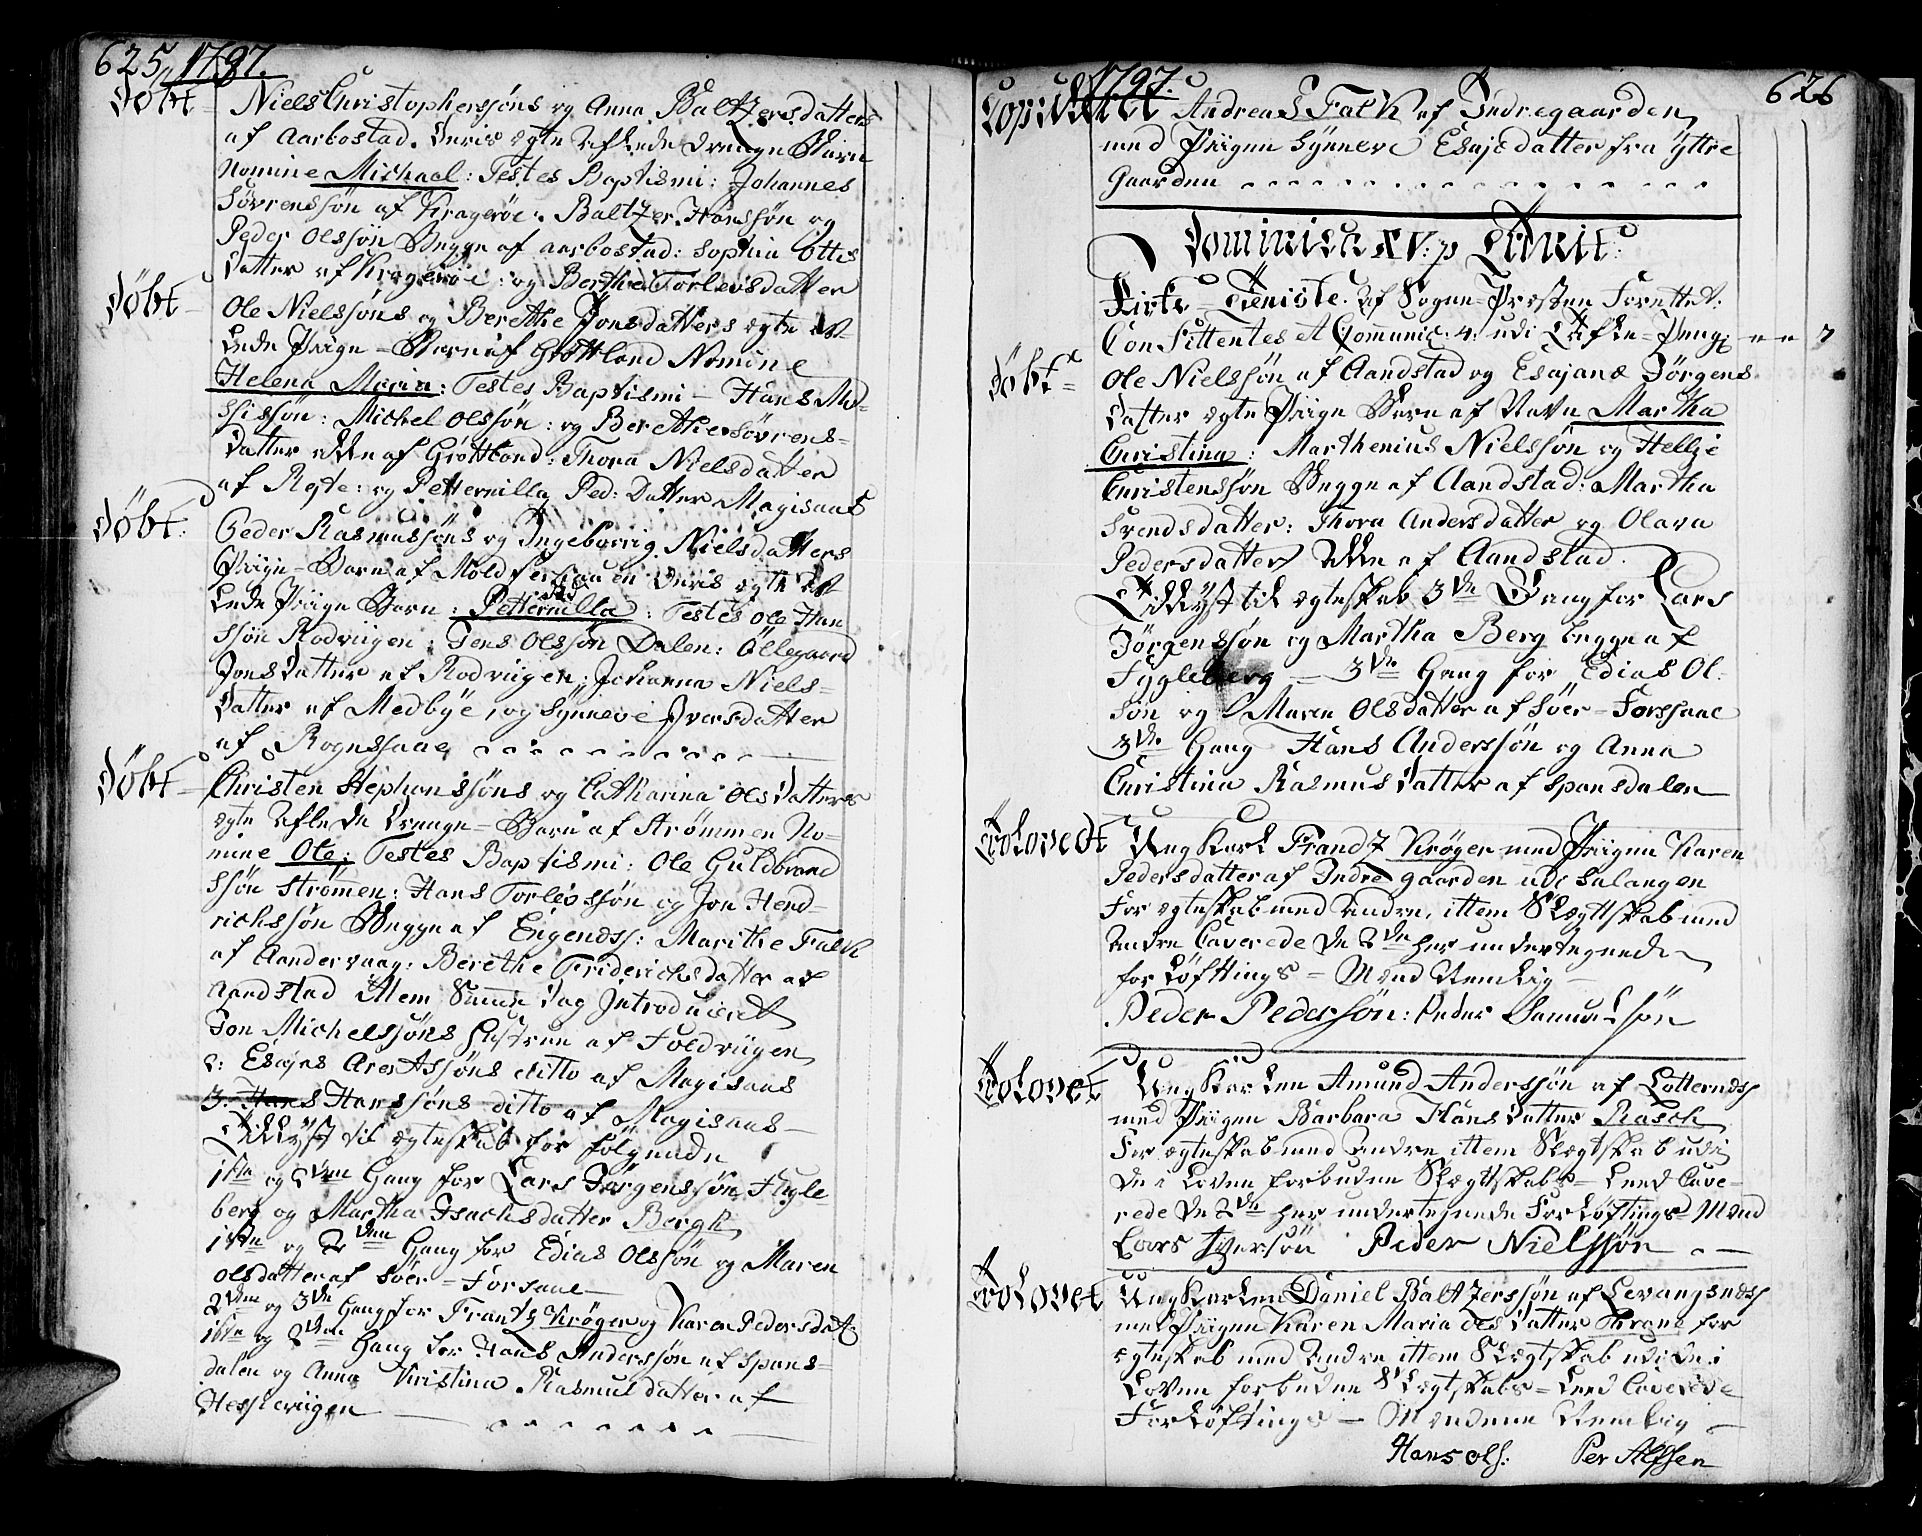 625 1797.
Døbt - Niels Christophersøns og Anna Baltzersdatters
af Aarbostad. Deris ægte Aflede Drenge Barn
Nomine Michael: Testes Baptismi: Johannes
Søvrenssøn af Kragerøe: Baltzer Hanssøn og
Peder Olssøn Begge af aarbostad: Sophia Ottes
datter af Kragerøe: og Berthe Torlevsdatter
Døbt - Ole Nielssøns og Berethe Jonsdatters ægte Af-
lede Piige - Barn af Grøttland Nomine
Helena Maria: Testes Baptismi - Hans Mad-
ssissøn: Michel Olssøn: og Berethe Søvrens-
datter alle af Grøttland: Thora Nielsdatter
af Røste: og Petternilla Ped: Datter Magisaas
Døbt: Peder Rasmussøns og Ingeborrig Nielsdatters
Piige - Barn af Moldfershauen Deris ægte Af-
lede Piige Barn: Petternilla: Testes Ole Han
ssøn Rodviigen: Jens Olssøn Dalen: Øllegaard
Jonsdatter af Rodviigen: Johanna Niels-
datter af Medbye, og Synneve Iversdatter
af Rognssaae
Døbt - Christen Stephanssøns og Catharina Olsdatters
ægte Aflede Drenge - Barn af Strømmen No-
mine Ole: Testes Baptismi: Ole Guldbrand
ssøn Strømen: Hans Torlevssøn og Jon Hend-
richssøn Begge af Eigendss: Marithe Falk
af Aandervaag: Berethe Friderichsdatter af
Aandstad Item Samme Dag Introduceret
Jon Michelssøns Hustrue af Foldviigen
2: Esajas Arentssøns ditto af Magisaas
3. Hans Hanssøns ditto af Magisaas
Tillyst til ægteskab for følgende
1ste og 2den Gang for Lars Jørgenssøn Fugle
berg og Martha Isachsdatter Bergh
1ste og 2den Gang for Edias Olssøn og Maren
Olsdatter af Søer - Forsaae
2den og 3die Gang for Frantz Krøger og Karen Pedersdat:
1ste og 2den Gang for Hans Anderssøn af Spans-
dalen og Anna Kristina Rasmusdatter af
Hesseviigen
1797. 626
Copuleret Andreas Falk af Indregaarden
med Piigen Synneve Esajedatter fra Yttre
Gaarden
Dominica XV: p Trinit:
Kirke - Tieniste. Af Sogne - Præsten Forrettet.
Confittentes et Communic: 4. udi Tafle - Penge 7
Døbt - Ole Nielssøn af Aandstad og Esajana Jørgens
datter ægte Piige Barn af Navn Martha
Christina: Marthenius Nielssøn og Hellje
Christenssøn Begge af Aandstad: Martha
Svendsdatter: Thora Andersdatter og Olava
Pedersdatter Alle af Aandstad.
Tillyst til ægteskab 3die Gang for Lars
Jørgenssøn og Martha Berg begge af
Fygleberg - 3die Gang for Edias Ol:
søn og Maren Olsdatter af Søer - Forssaae
3die Gang Hans Anderssøn og Anna
Christina Rasmusdatter af Spansdalen
Trolovedt Ung Karl Frandz Krøger med Piigen Karen
Pedersdatter af Indre gaarden udi Salangen
For ægteskab med Andre, ittem Slægttskab med
Andre Caverede de 2de her undertegnede
forløftings - Mænd Nemlig
Peder Pedersøn: Peder Samuelsøn
Trolovet Ung Karlen Amund Anderssøn af Lotterndss
med Piigen Barbara Hansdatter Rasch
For ægteskab med Andre ittem Slægtskab udi
de i Loven forbudne Slægttskabs - Leed Cave-
rede de 2de her undertegnede Forløftings Mænd
Lars Iversøn Peder Nielssøn
Trolovet Ung Karlen Daniel Baltzerssøn af Levangsndss
med Piigen Karen Maria Olsdatter Krane for
ægteskab med Andre ittem Slægtskab udi de i
Loven forbudne Slægtskabs - Leed Caverede
Forløftings - Mændene Nemlig
Hans Ols: Per Alfsen